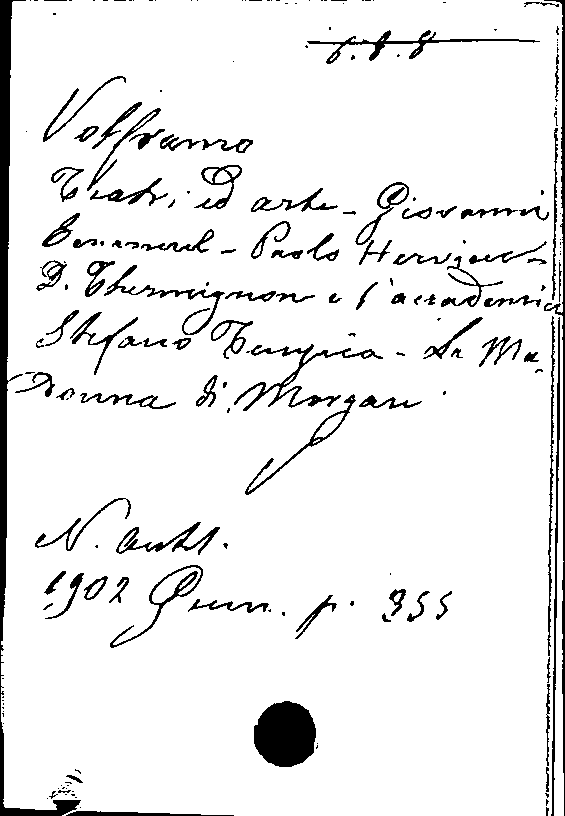 6.8.8
Volframo
Teatri ed arte - Giovanni
Emanuel - Paolo Hervieu -
D. Thermignon e l'accademia
Stefano Tempia - La Ma-
donna di Morgari
N. Ant.
1902 Genn. p. 355